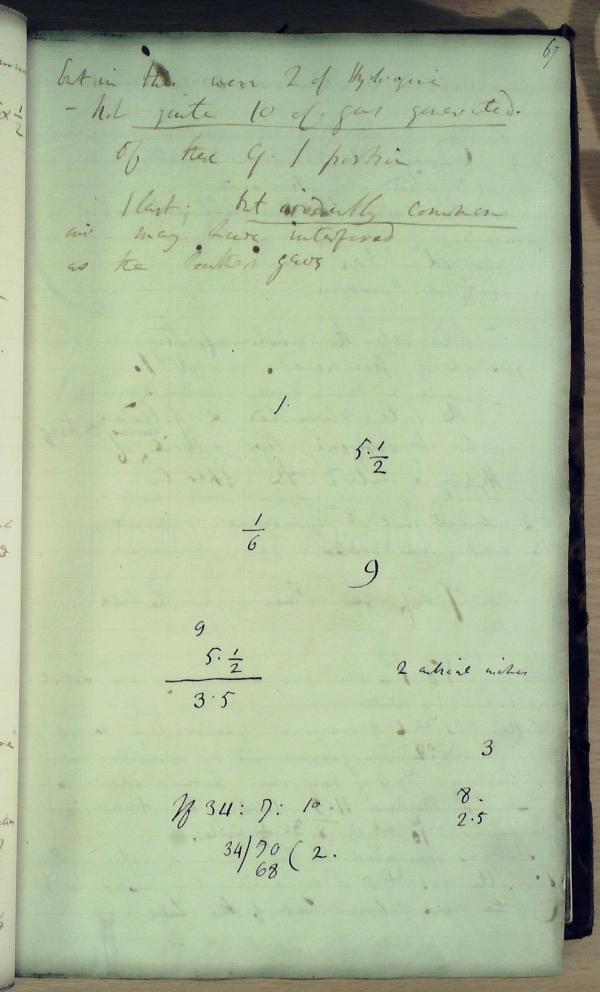 67
but in this were 2 of Hydrogene
- Not quite 10 of gas generated.
Of these 9. 1 portion
1 last; but evidently common
air may have interfered
as the Leather gave
1.
5.1/2
1/6
9
9
5.1/2
3.5
2 cubical inches
3
If 34: 7: 10
8.
2.5
34/70 ( 2.
68